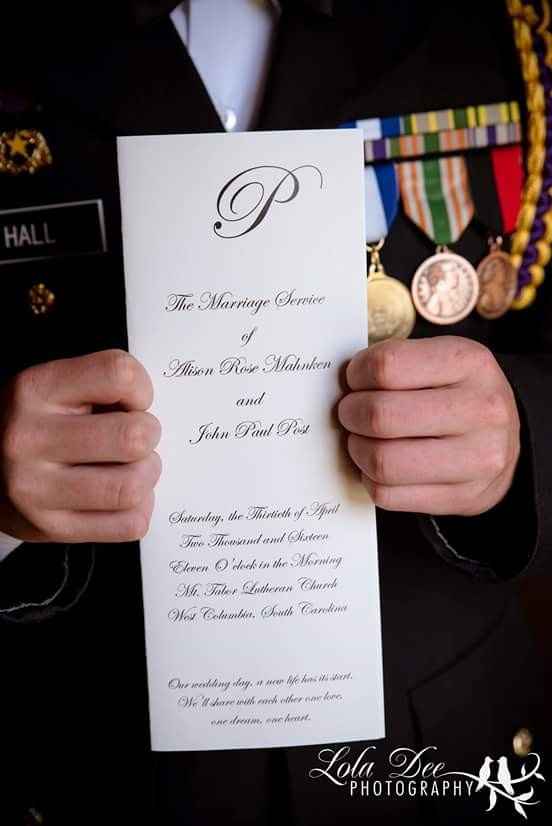 P
HALL
The Marriage Service
of
Alison Rose Mahnken
and
John Paul Post
Saturday, the Thirtieth of April
Two Thousand and Sixteen
Eleven O'clock in the Morning
Mt. Tabor Lutheran Church
West Columbia, South Carolina
Our wedding day, a new life has its start.
We'll share with each other one love,
one dream, one heart.
Lola Dee
PHOTOGRAPHY